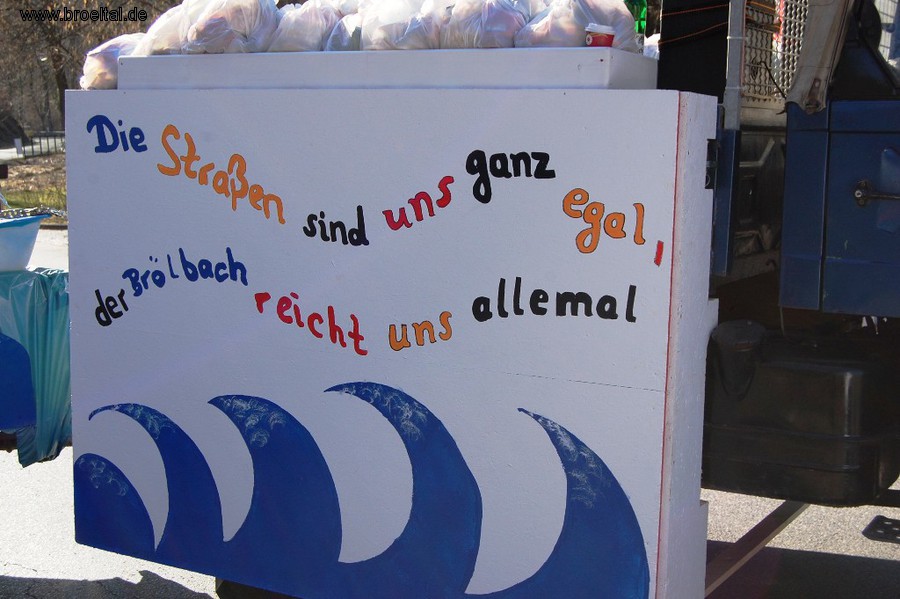 www.broeltal.de
Die Straßen sind uns ganz egal,
der Brölbach reicht uns allemal